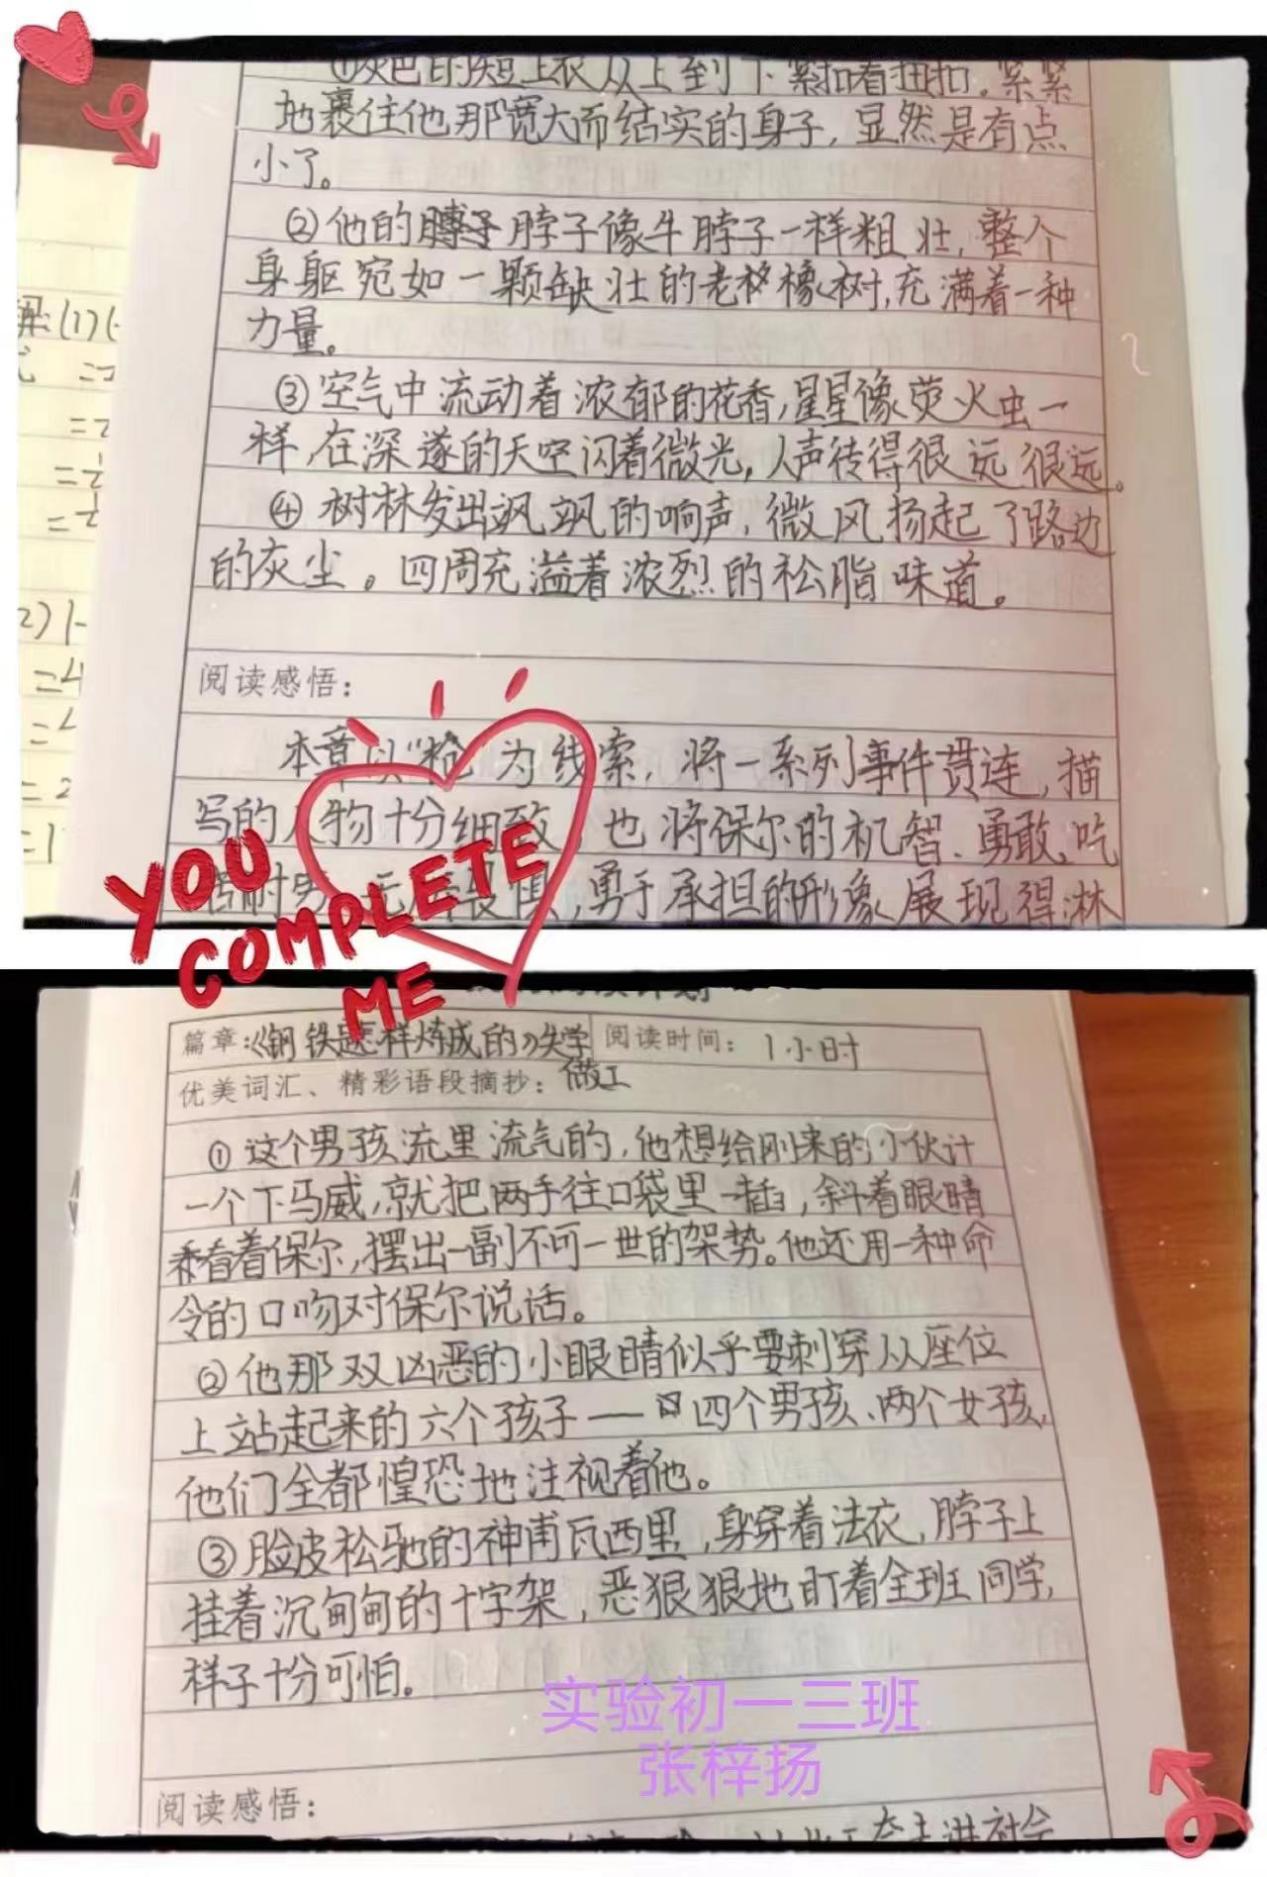 ①灰色的短上衣从上到下紧扣着扭扣。紧紧
地裹住他那宽大而结实的身子，显然是有点
小了。
②他的脖子像牛脖子一样粗壮，整个
身躯宛如一颗缺壮的老橡树，充满着一种
力量。
③空气中流动着浓郁的花香，星星像荧火虫一
样，在深遂的天空闪着微光，人声传得很远很远。
④树林发出飒飒的响声，微风扬起了路边
的灰尘。四周充溢着浓烈的松脂味道。
阅读感悟：
本章以“枪”为线索，将一系列事件贯连，描
写的人物十分细致，也将保尔的机智、勇敢、吃
苦耐劳、无所畏惧，勇于承担的形象展现得淋
YOU
COMPLETE
ME
篇章：《钢铁是怎样炼成的》失学 阅读时间：1小时
优美词汇、精彩语段摘抄：做工
①这个男孩流里流气的，他想给刚来的小伙计
一个下马威，就把两手往口袋里一插，斜着眼睛
看着保尔，摆出一副不可一世的架势。他还用一种命
令的口吻对保尔说话。
②他那双凶恶的小眼睛似乎要刺穿从座位
上站起来的六个孩子——四个男孩、两个女孩，
他们全都惶恐地注视着他。
③脸皮松驰的神甫瓦西里，身穿着法衣，脖子上
挂着沉甸甸的十字架，恶狠狠地盯着全班同学，
样子十分可怕。
实验初一三班
张梓扬
阅读感悟：
=2
=1